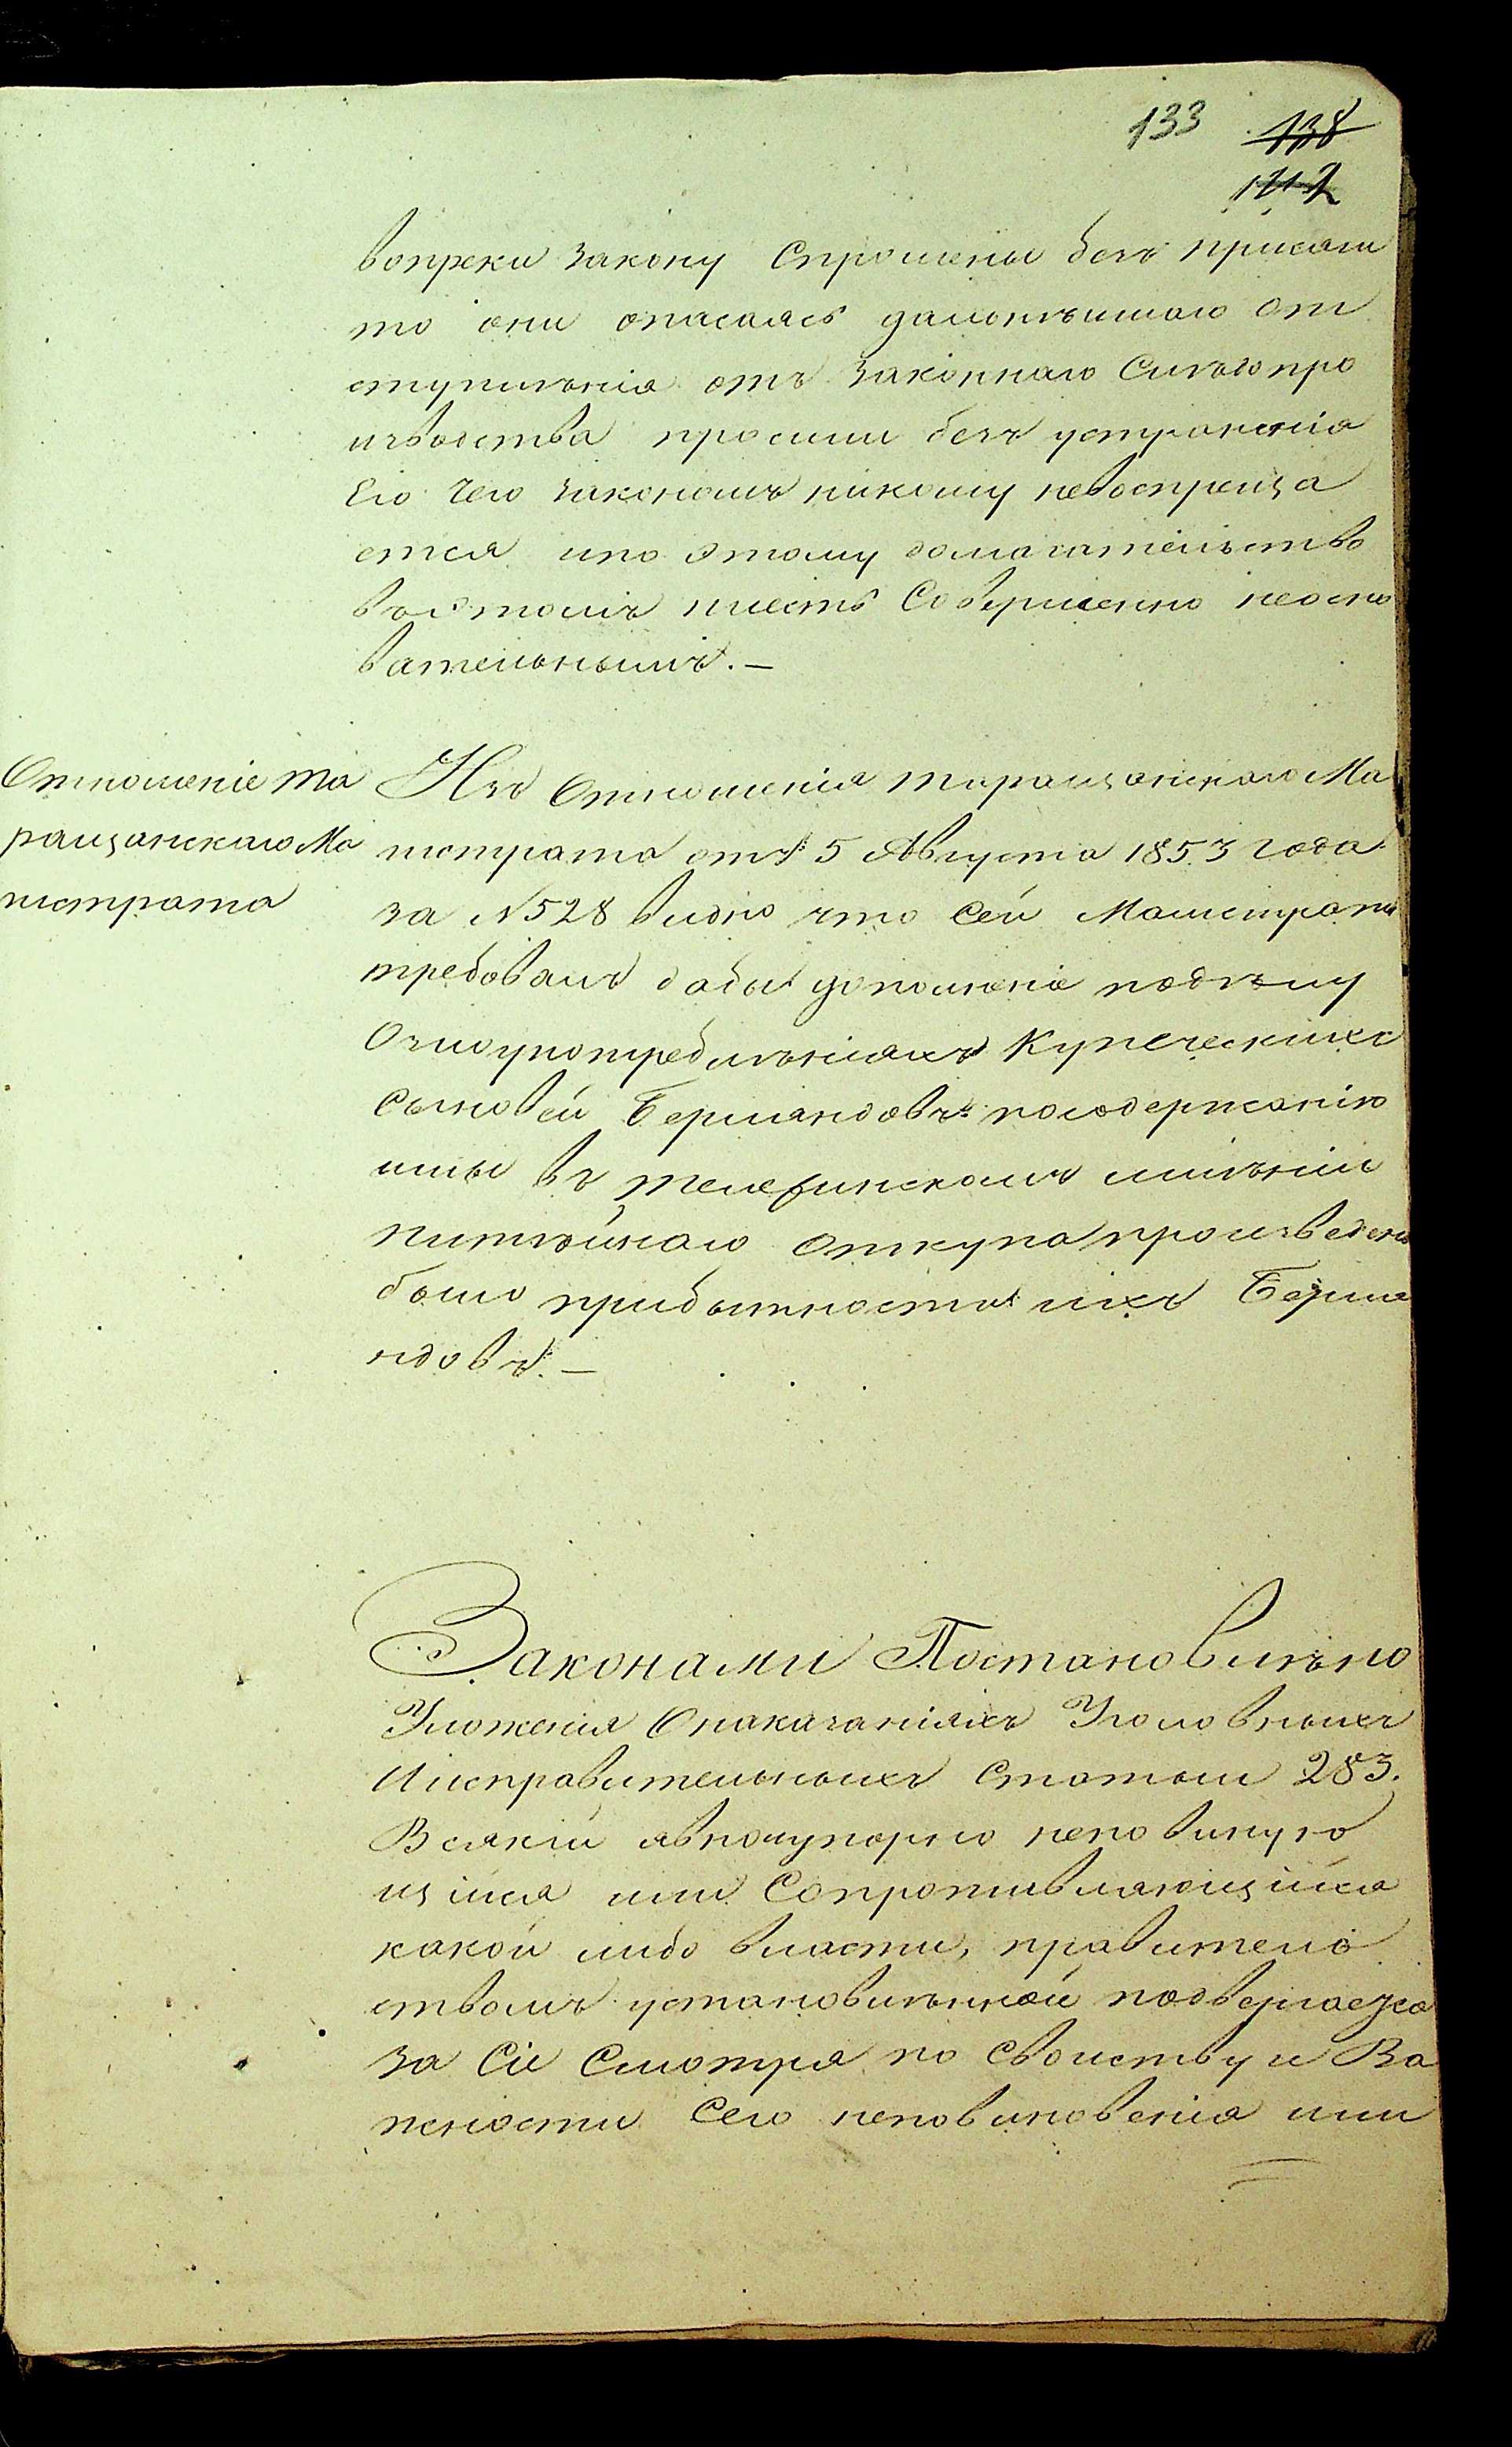 133 138
142
вопреки закону Спрошены безъ присяги
то они опасаясь дальнѣйшаго от
ступлѣнія отъ законнаго Слѣдопро
изводства просили безъ устраненія
Его Чего закономъ никому невоспреща
ется ипо этому домагательство
въэтомъ иместь Совершенно неосно
вательнымъ.—
Отношеніе Та
ращанскаго Ма
гистрата
Изъ Отношенія таращанскаго Ма
гистрата отъ 5 Августа 1853 года
за N528 видно что Сей Магистратъ
требовалъ дабы дополненіе подѣлу
Озлоупотреблѣніяхъ Купеческихъ
Сыновей Бермандовъ посодержанію
ими въ имѣніи
питейнаго откупа произведено
было прибытности ихъ Берма
ндовъ.—
Законами Постановлѣно
Уложенія Онаказаніяхъ Уголовныхъ
Иисправительныхъ Статьи 283.
Всякій явноупорно неповиную
щійся или Сопротивляющійся
какой либо власти, правитель
ствомъ установлѣнной подвергается
за Сіе Смотря по Свойству и Ва
жности Сего неповиновенія или